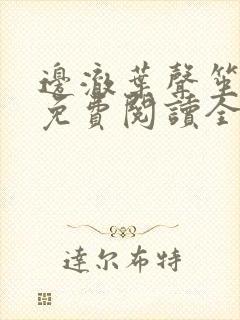 邊澈葉聲笙
免費閱讀全
達尔布特